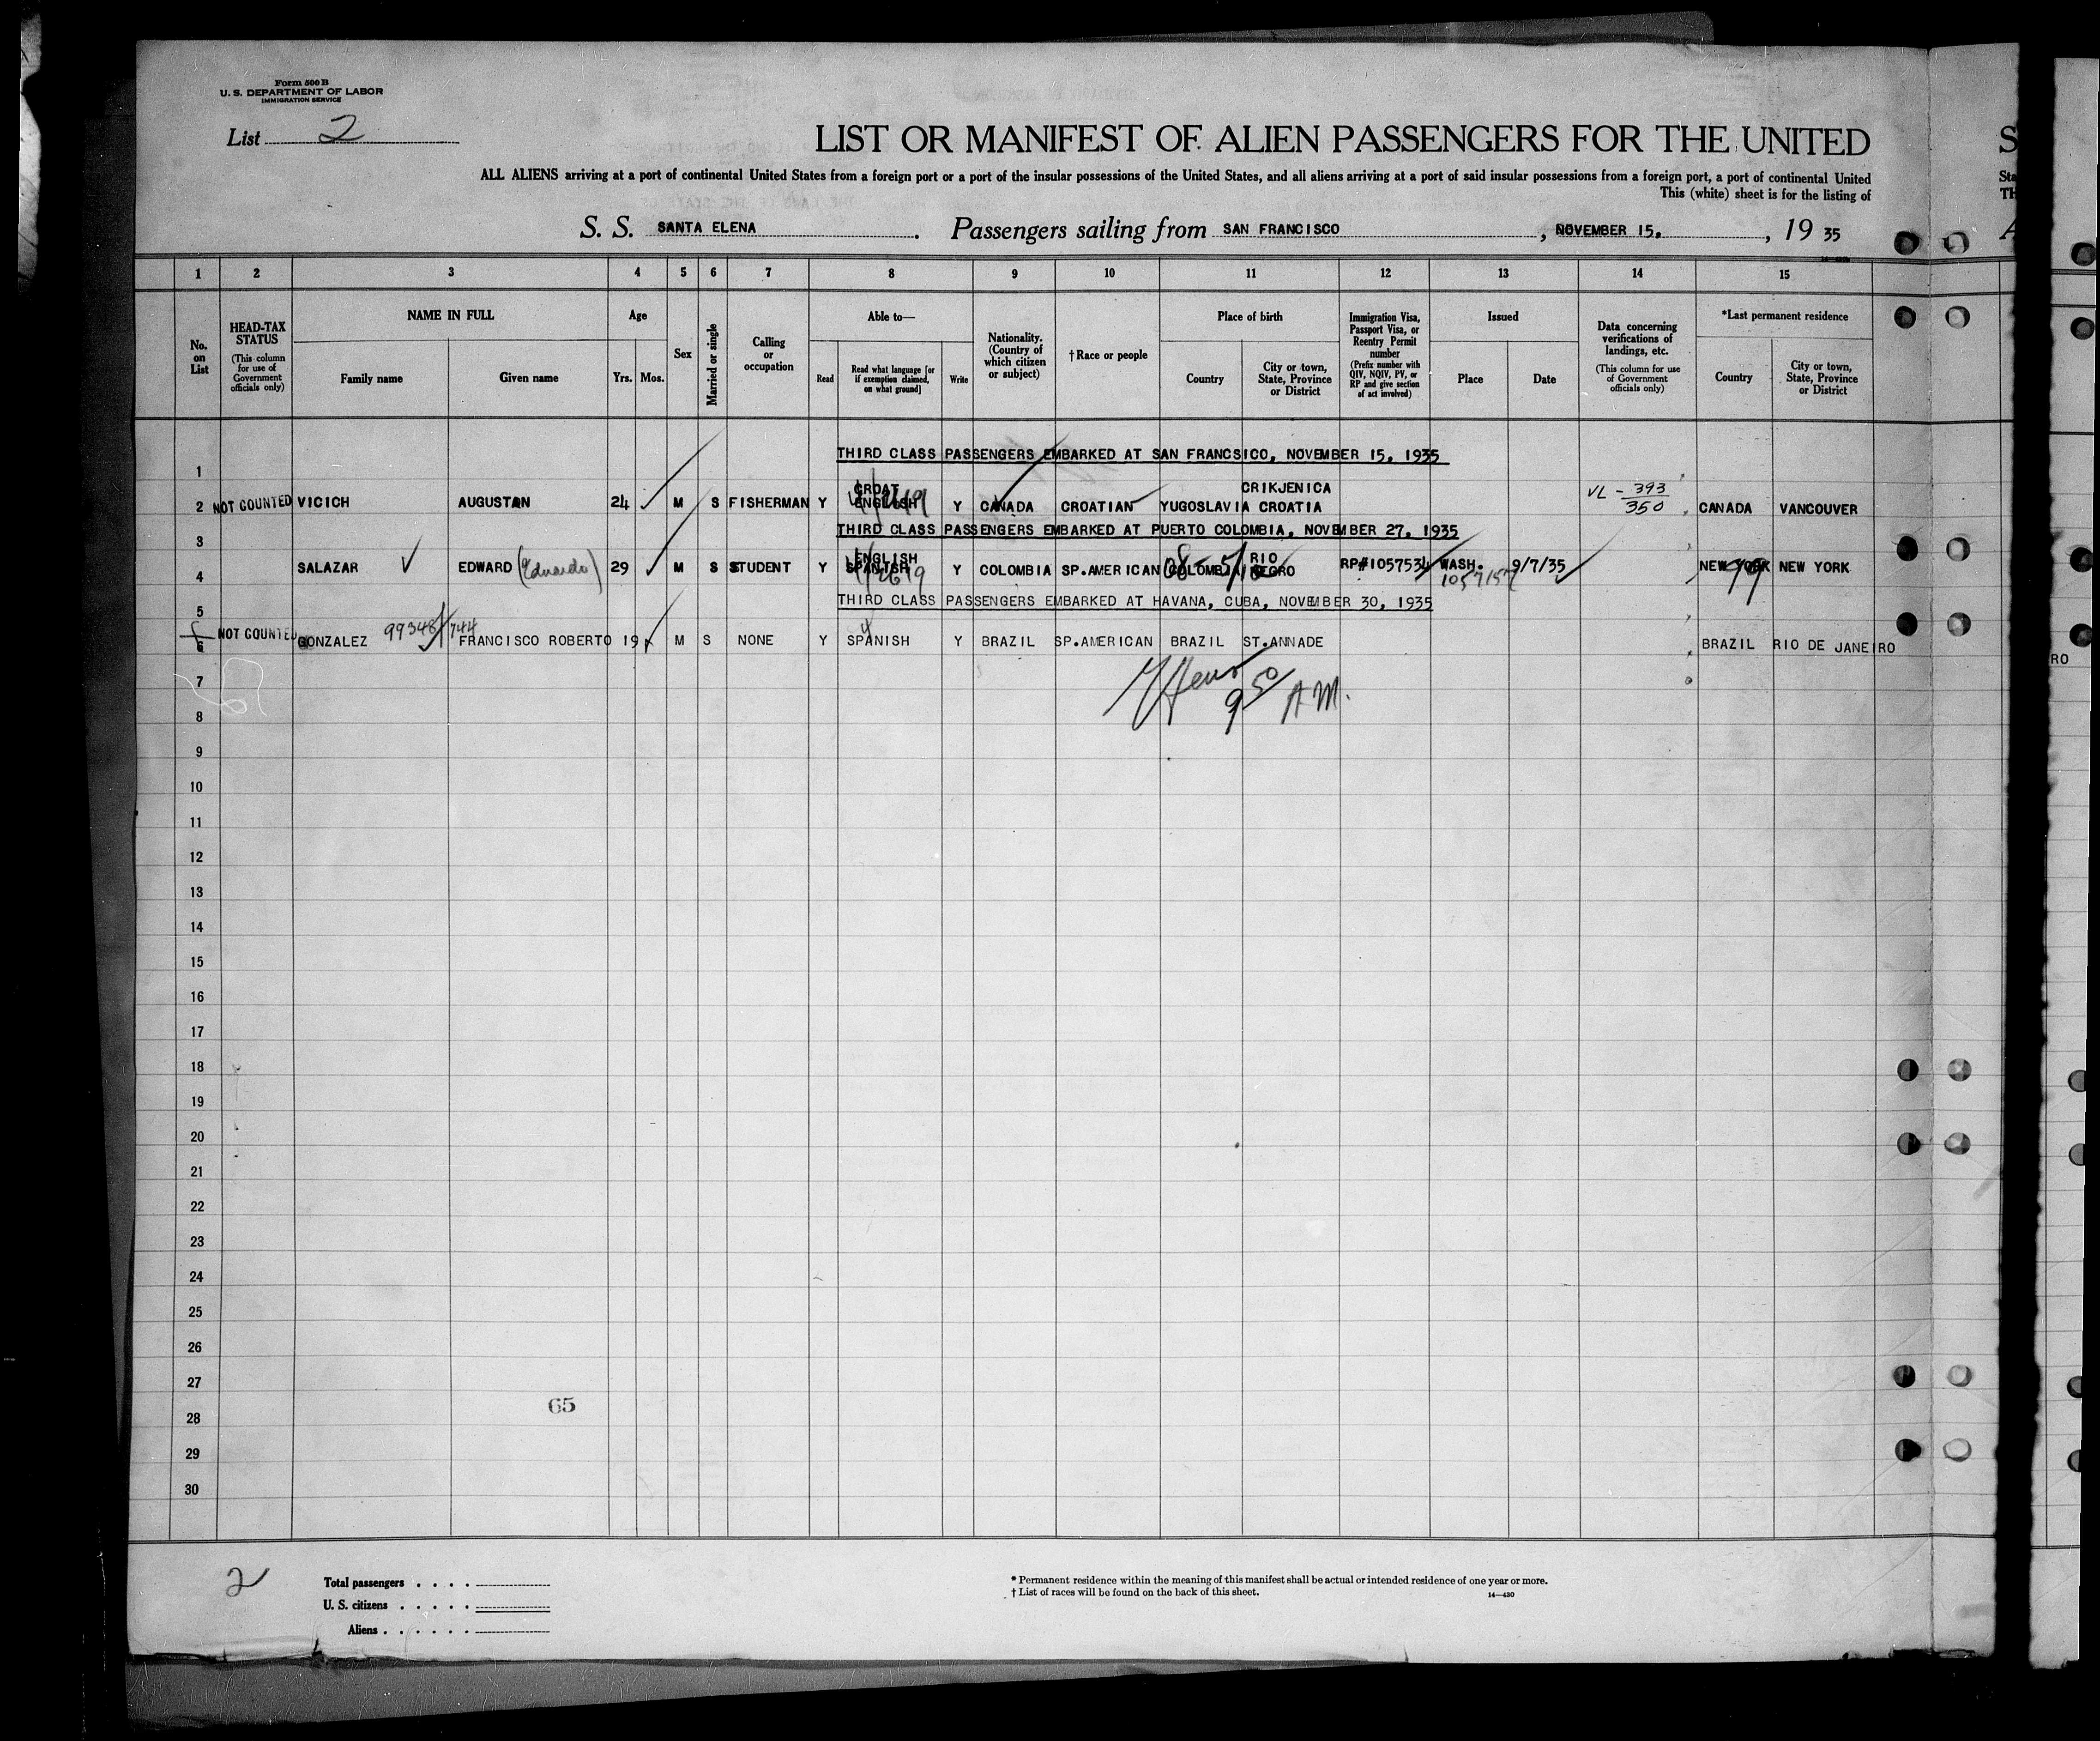 Form 500 B
U. S. DEPARTMENT OF LABOR
IMMIGRATION SERVICE
List 2
LIST OR MANIFEST OF ALIEN PASSENGERS FOR THE UNITED
ALL ALIENS arriving at a port of continental United States from a foreign port or a port of the insular possessions of the United States, and all aliens arriving at a port of said insular possessions from a foreign port, a port of continental United
This (white) sheet is for the listing of
S. S. SANTA ELENA. Passengers sailing from SAN FRANCISCO, NOVEMBER 15, , 19 35
1 2 3 4 5 6 7 8 9 10 11 12 13 14 15
No. on List
HEAD-TAX STATUS (This column for use of Government officials only)
NAME IN FULL
Family name
Given name
Age
Yrs. Mos.
Sex
Married or single
Calling or occupation
Able to—
Read
Read what language [or if exemption claimed, on what ground]
Write
Nationality. (Country of which citizen or subject)
†Race or people
Place of birth
Country
City or town, State, Province or District
Immigration Visa, Passport Visa, or Reentry Permit number (Prefix number with QIV, NQIV, PV, or RP and give section of act involved)
Issued
Place
Date
Data concerning verifications of landings, etc. (This column for use of Government officials only)
*Last permanent residence
Country
City or town, State, Province or District
THIRD CLASS PASSENGERS EMBARKED AT SAN FRANCSICO, NOVEMBER 15, 1935
1
CROAT CRIKJENICA
2 NOT COUNTED VICICH AUGUSTAN 24 M S FISHERMAN Y ENGLISH Y CANADA CROATIAN YUGOSLAVIA CROATIA VL - 393 350 CANADA VANCOUVER
THIRD CLASS PASSENGERS EMBARKED AT PUERTO COLOMBIA, NOVEMBER 27, 1935
3
ENGLISH RIO
4 SALAZAR EDWARD (Eduardo) 29 M S STUDENT Y SPANISH Y COLOMBIA SP.AMERICAN COLOMBIA NEGRO RP#1057534 WASH. 9/7/35 NEW YORK NEW YORK
1057157
THIRD CLASS PASSENGERS EMBARKED AT HAVANA, CUBA, NOVEMBER 30, 1935
5
6 NOT COUNTED GONZALEZ 99348/744 FRANCISCO ROBERTO 19 M S NONE Y SPANISH Y BRAZIL SP.AMERICAN BRAZIL ST.ANNADE BRAZIL RIO DE JANEIRO
9 50 A M.
7
8
9
10
11
12
13
14
15
16
17
18
19
20
21
22
23
24
25
26
27
65
28
29
30
2
Total passengers . . . .
U. S. citizens . . . . .
Aliens . . . . . .
* Permanent residence within the meaning of this manifest shall be actual or intended residence of one year or more.
† List of races will be found on the back of this sheet.
14—430